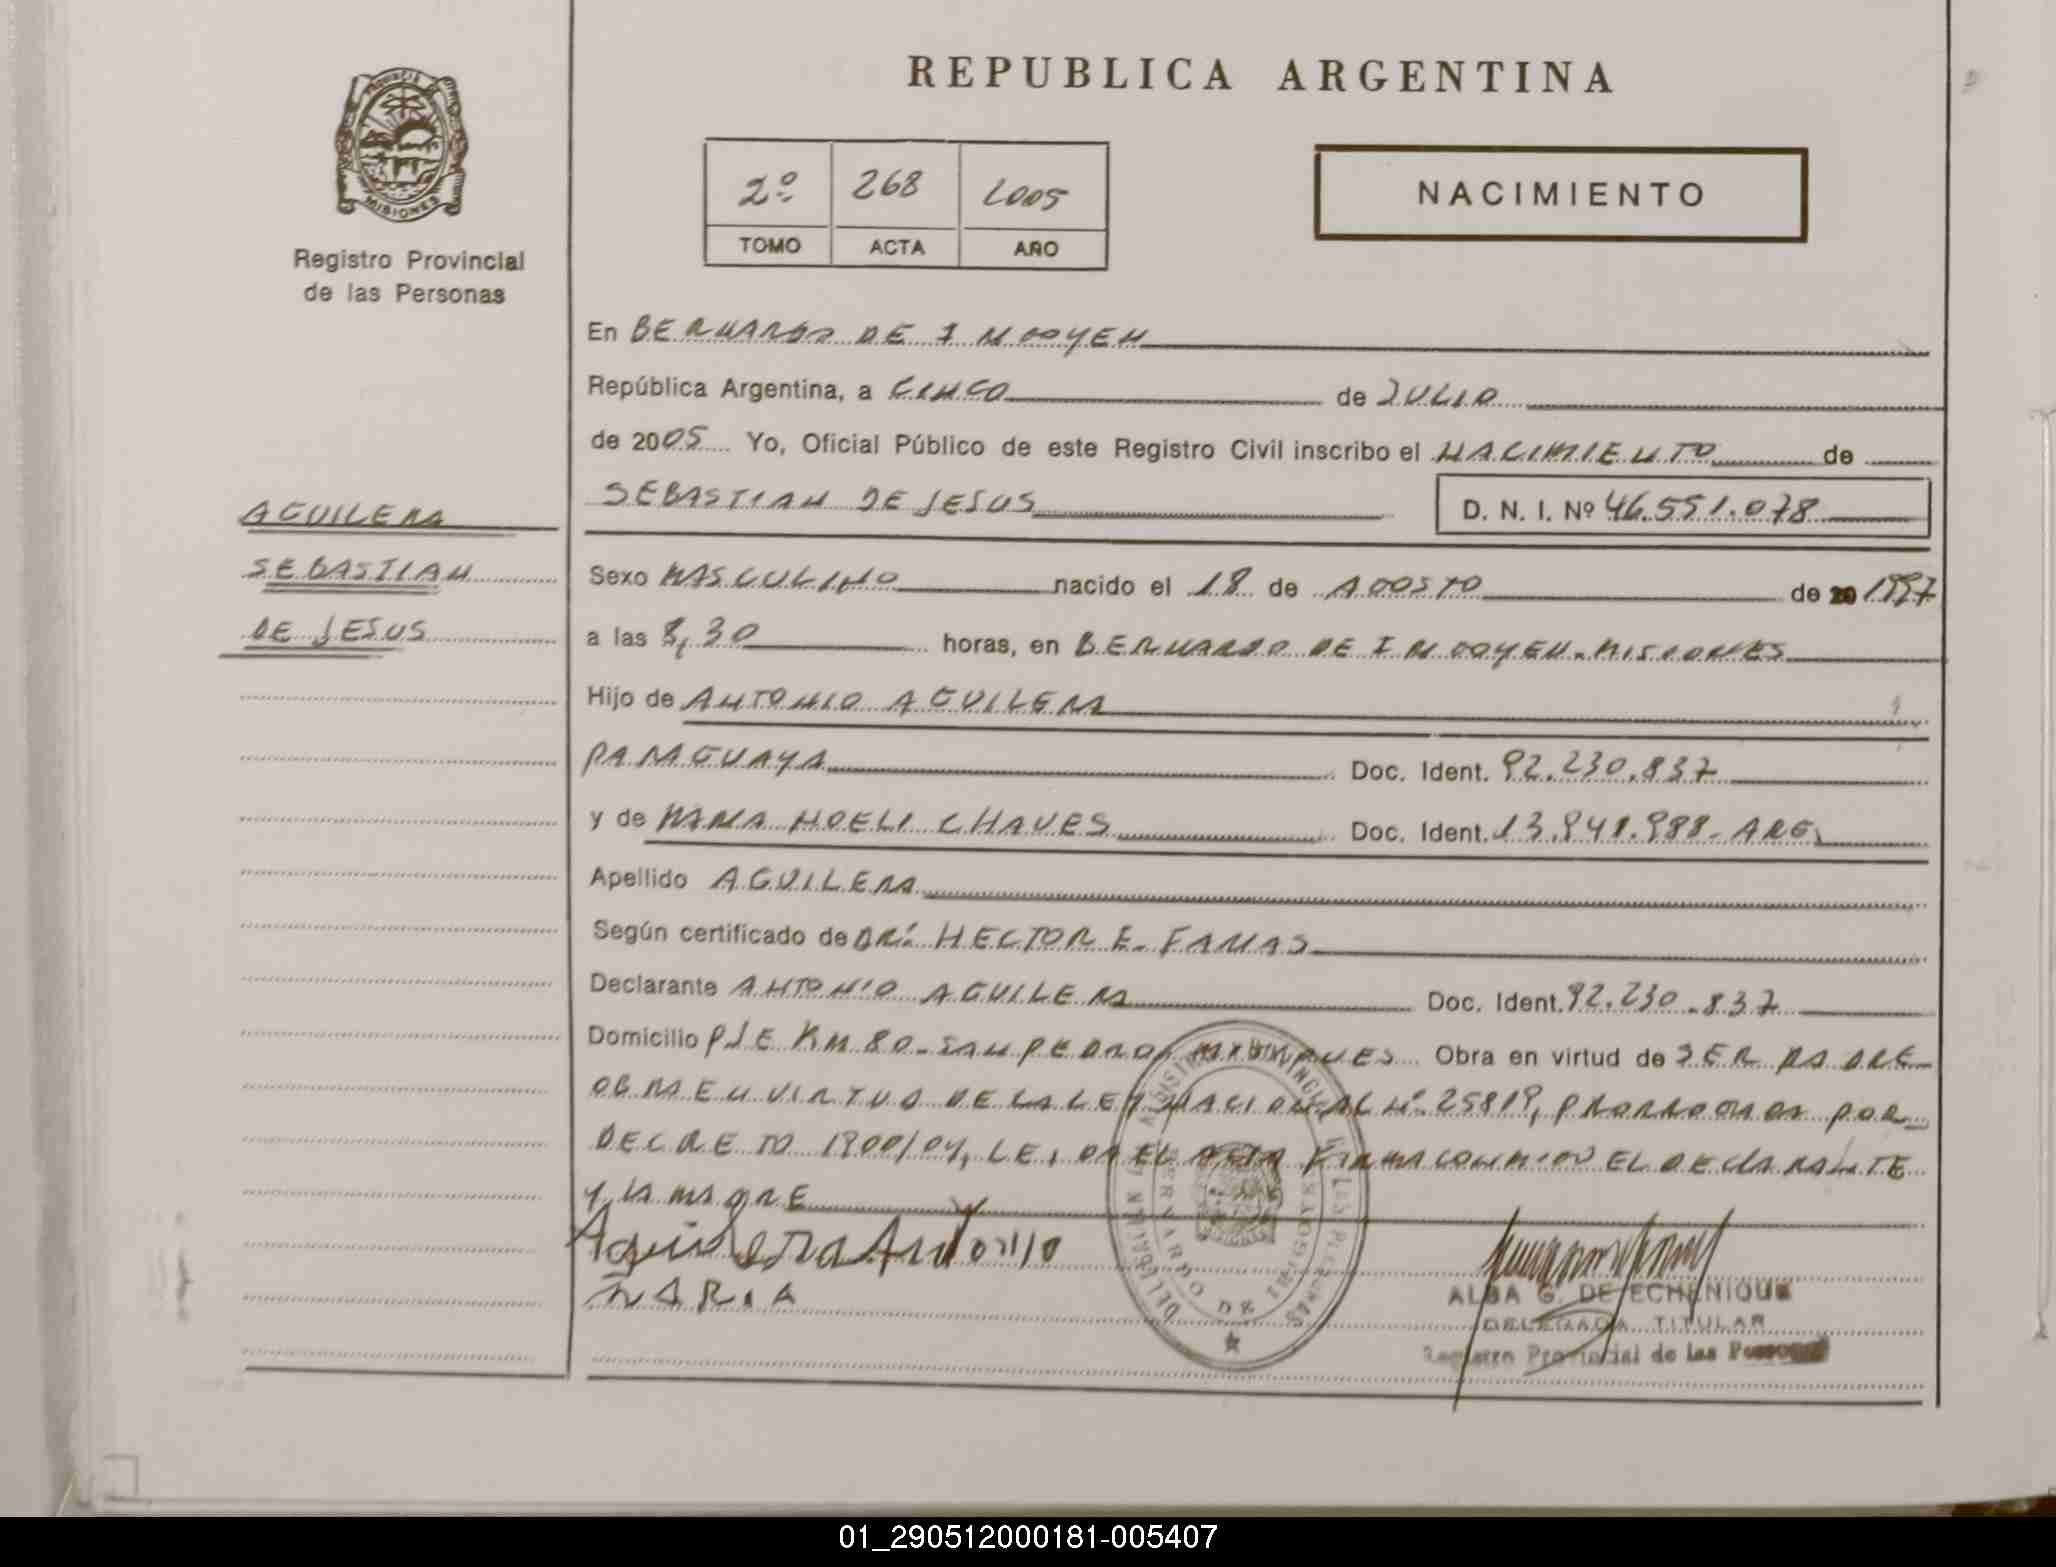 REPUBLICA ARGENTINA
PROVINCIA
MISIONES
Registro Provincial
de las Personas
2º 268 2005
TOMO ACTA AÑO
NACIMIENTO
En BERNARDO DE IRIGOYEN
República Argentina, a CINCO de JULIO
de 2005 Yo, Oficial Público de este Registro Civil inscribo el NACIMIENTO de
SEBASTIAN DE JESUS D. N. I. Nº 46.551.078
AGUILERA
SEBASTIAN
DE JESUS
Sexo MASCULINO nacido el 18 de AGOSTO de 20 1997
a las 8,30 horas, en BERNARDO DE IRIGOYEN-MISIONES
Hijo de ANTONIO AGUILERA
PARAGUAYA Doc. Ident. 92.230.837
y de MARIA NOELI CHAVES Doc. Ident. 13.941.988- ARG.
Apellido AGUILERA
Según certificado de DR. HECTOR E. FARIAS
Declarante ANTONIO AGUILERA Doc. Ident. 92.230.837
Domicilio PJE KM 80-SAN PEDRO MISIONES Obra en virtud de SER PADRE
OBRA EN VIRTUD DE LA LEY NACIONAL Nº 25819, PRORROGADA POR
DECRETO 1900/04, LEIDA EL ACTA FIRMA CONMIGO EL DECLARANTE
Y LA MADRE
Aguilera Antonio
MARIA
DELEGACION REGISTRO PROVINCIAL DE LAS PERSONAS
BERNARDO DE IRIGOYEN
ALBA G. DE ECHENIQUE
DELEGADA TITULAR
Registro Provincial de las Personas
01_290512000181-005407